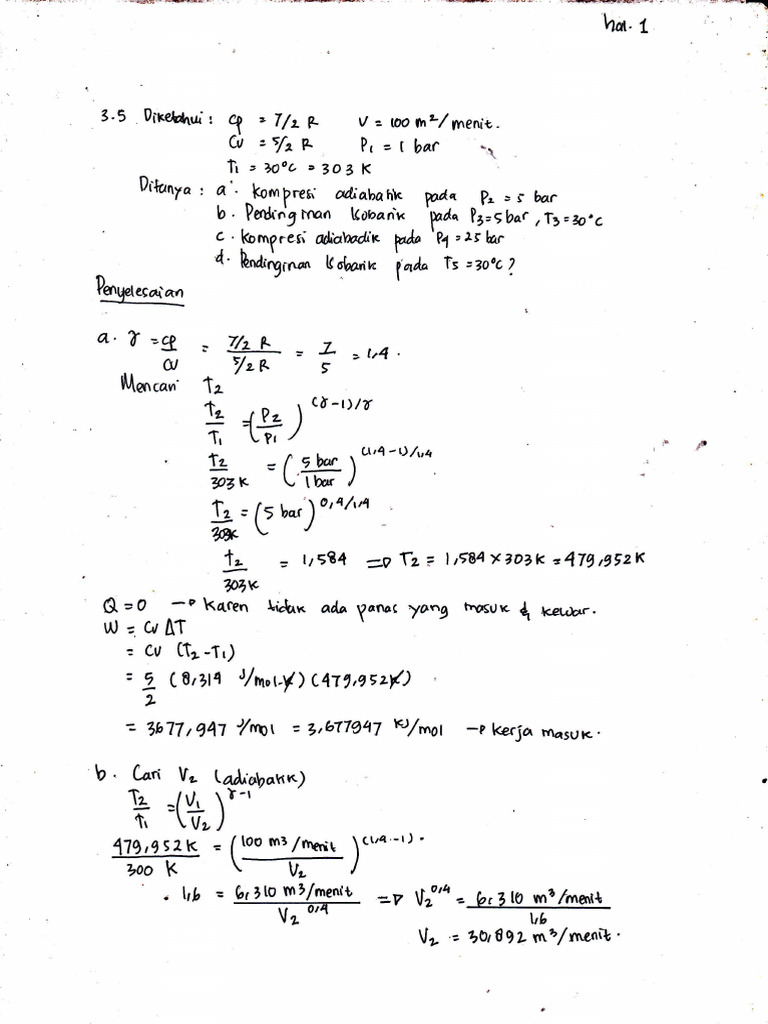 hal. 1
3.5 Diketahui : Cp = 7/2 R V = 100 m²/menit.
Cv = 5/2 R P₁ = 1 bar
T₁ = 30°C = 303 K
Ditanya : a. kompresi adiabatik pada P₂ = 5 bar
b. Pendinginan Isobarik pada P₃=5 bar, T₃=30°C
c. kompresi adiabadik pada P₄ = 25 bar
d. Pendinginan Isobarik pada T₅ = 30°C?
Penyelesaian
a. γ = Cp/Cv = (7/2 R)/(5/2 R) = 7/5 = 1,4.
Mencari T₂
T₂/T₁ = (P₂/P₁)^(γ-1)/γ
T₂/303 K = (5 bar/1 bar)^(1,4-1)/1,4
T₂/303K = (5 bar)^0,4/1,4
T₂/303 K = 1,584 => T₂ = 1,584 x 303 K = 479,952 K
Q = 0 → karen tidak ada panas yang masuk & keluar.
W = Cv ΔT
= Cv (T₂-T₁)
= 5/2 (8,314 J/mol.K) (479,952K)
= 3677,947 J/mol = 3,677947 KJ/mol → kerja masuk.
b. Cari V₂ (adiabatik)
T₂/T₁ = (V₁/V₂)^γ-1
479,952 K/300 K = (100 m3/menit/V₂)^(1,4-1).
1,6 = 6,310 m3/menit/V₂^0,4 => V₂^0,4 = 6,310 m³/menit/1,6
V₂ = 30,892 m³/menit.